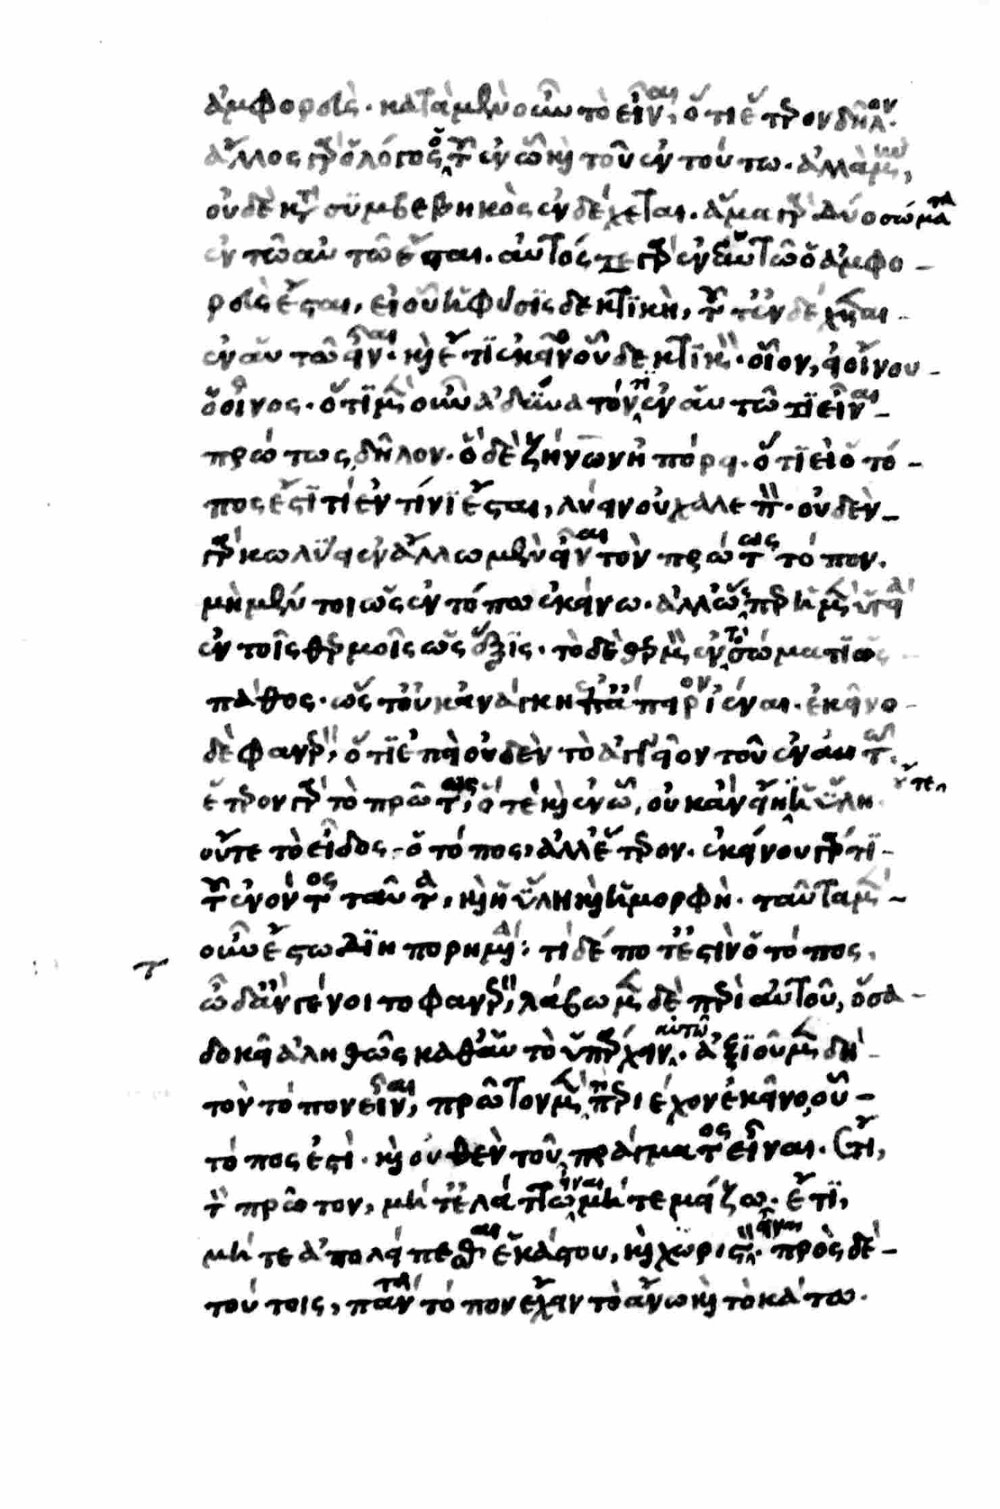 ἀμφορεὺς. κατὰ μὲν οὖν τὸ εἶναι, ὅτι ἕτερον δῆλον.
ἄλλος γὰρ ὁ λόγος, ὁ τοῦ ἐν ᾧ καὶ τοῦ ἐν τούτω. ἀλλὰ μὴν,
οὐδὲ κατὰ συμβεβηκὸς ἐνδέχεται. ἅμα γὰρ δύο σώματα
ἐν τῶ αὐτῶ ἔσται. αὐτός τε γὰρ ἐν ἑαυτῶ ὁ ἀμφο-
ρεὺς ἔσται, εἰ οὗ ἡ φύσις δεκτικὴ, τοῦτ' ἐνδέχεται
ἐν αὐτῶ εἶναι. καὶ ἔτι ἐκεῖνο οὗ δεκτικὸν. οἷον, εἰ οἴνου
ὁ οἶνος. ὅτι μὲν οὖν ἀδύνατόν τι ἐν αὑτῶ τι εἶναι
πρώτως, δῆλον. ὃ δὲ ζήνων ἠπόρει. ὅτι εἰ ὁ τό-
πος ἐστί τι ἐν τίνι ἔσται, λύειν οὐ χαλεπὸν. οὐδὲν
γὰρ κωλύει ἐν ἄλλω μὲν εἶναι τὸν πρώτως τόπον.
μὴ μέντοι ὡς ἐν τόπω ἐκείνω. ἀλλ' ὥσπερ ἡ μὲν ὑγεία
ἐν τοῖς θερμοῖς ὡς ἕξις. τὸ δὲ θερμὸν, ἐν τῶ σώματι ὡς
πάθος. ὥστ' οὐκ ἀνάγκη εἰς ἄπειρον ἰέναι. ἐκεῖνο
δὲ φανερὸν, ὅτι ἐπεὶ οὐδὲν τὸ ἀγγεῖον τοῦ ἐν αὐτῶ.
ἕτερον γὰρ τὸ πρώτως, ὅ τε καὶ ἐν ᾧ, οὐκ ἂν εἴη ἡ ὕλη
οὔτε τὸ εἶδος ὁ τόπος, ἀλλ' ἕτερον. ἐκείνου γάρ τι
τοῦ ἐνόντος ταῦτα, καὶ ἡ ὕλη καὶ ἡ μορφὴ. ταῦτα μὲν
οὖν ἔστω διηπορημένα: τί δέ ποτ' ἐστὶν ὁ τόπος,
ὧδ' ἂν γένοιτο φανερὸν, λάβωμεν δὲ περὶ αὐτοῦ, ὅσα
δοκεῖ ἀληθῶς καθ' αὑτὸ ὑπάρχειν αὐτῶ. ἀξιοῦμεν δὴ
τὸν τόπον εἶναι, πρῶτον μὲν περιέχον ἐκεῖνο, οὗ
τόπος ἐστὶ. καὶ οὐθὲν τοῦ πράγματος εἶναι. ἔτι,
τὸν πρῶτον, μήτ' ἐλάττω εἶναι μήτε μείζω. ἔτι,
μήτε ἀπολείπεσθαι ἑκάστου, καὶ χωριστὸν εἶναι. πρὸς δὲ
τούτοις, πάντα τόπον ἔχειν τὸ ἄνω καὶ τὸ κάτω.